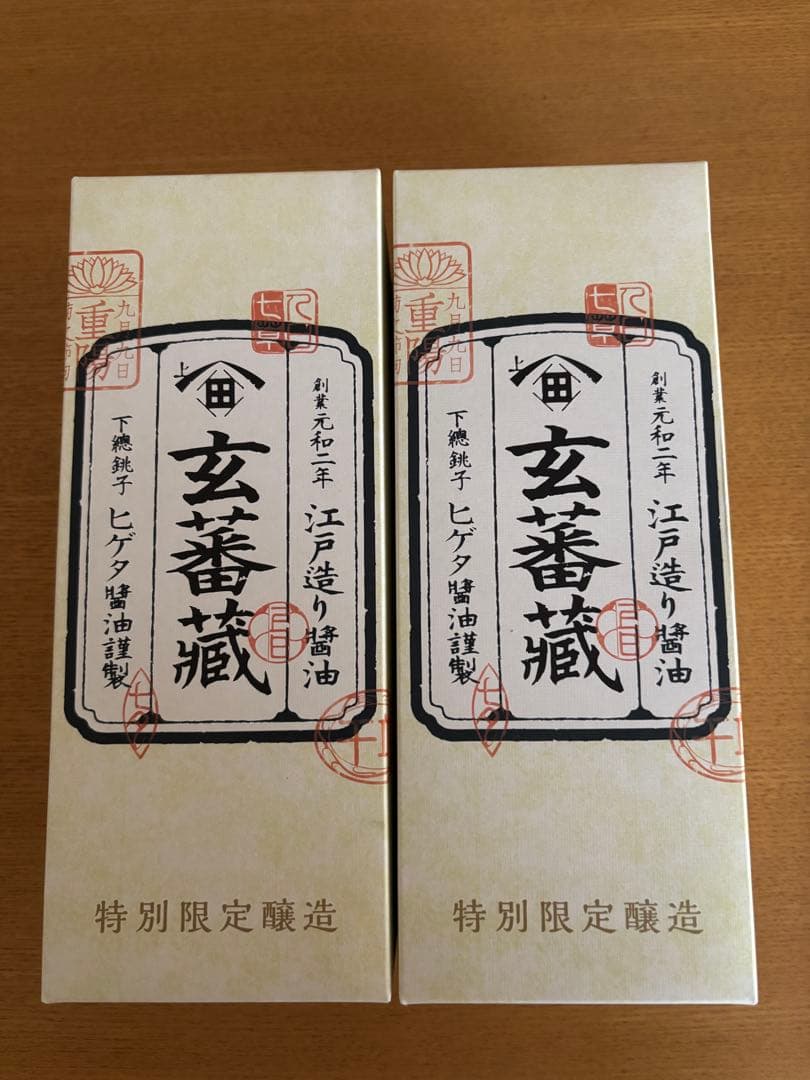 九月九日
重陽
上
田
創業元和二年
江戸造り醬油
玄蕃藏
下總銚子
ヒゲタ醬油謹製
特別限定醸造
九月九日
重陽
上
田
創業元和二年
江戸造り醬油
玄蕃藏
下總銚子
ヒゲタ醬油謹製
特別限定醸造